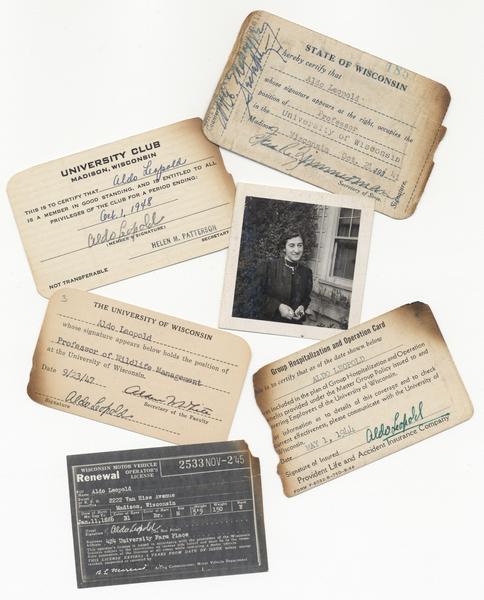 185
STATE OF WISCONSIN
I hereby certify that
Aldo Leopold
whose signature appears at the right, occupies the
position of Professor
in the University of Wisconsin
Madison, Wisconsin Oct. 2,
Secretary of State.
UNIVERSITY CLUB
MADISON, WISCONSIN
THIS IS TO CERTIFY THAT Aldo Leopold
IS A MEMBER IN GOOD STANDING, AND IS ENTITLED TO ALL
PRIVILEGES OF THE CLUB FOR A PERIOD ENDING:
Oct. 1, 1948
Aldo Leopold
(MEMBER'S SIGNATURE)
HELEN M. PATTERSON
SECRETARY
NOT TRANSFERABLE
3
THE UNIVERSITY OF WISCONSIN
Aldo Leopold
whose signature appears below holds the position of
Professor of Wildlife Management
at the University of Wisconsin.
Date 9/23/47
Secretary of the Faculty
Aldo Leopold
Signature
Group Hospitalization and Operation Card
is to certify that as of the date shown below
ALDO LEOPOLD
included in the plan of Group Hospitalization and Operation
provided under the Master Group Policy issued to and
covering Employees of the University of Wisconsin.
information as to details of this coverage and to check
current effectiveness, please communicate with the University
of Wisconsin.
Date MAY 1, 1944
Aldo Leopold
Signature of Insured
Provident Life and Accident Insurance Company
WISCONSIN MOTOR VEHICLE
OPERATOR'S
LICENSE
Renewal
2533 NOV-2'45
Aldo Leopold
2222 Van Hise Avenue
Madison, Wisconsin
Height Weight
Jan.11,1886 Bl Br. M 5'9 150 W
Aldo Leopold
424 University Farm Place
Commissioner, Motor Vehicle Department